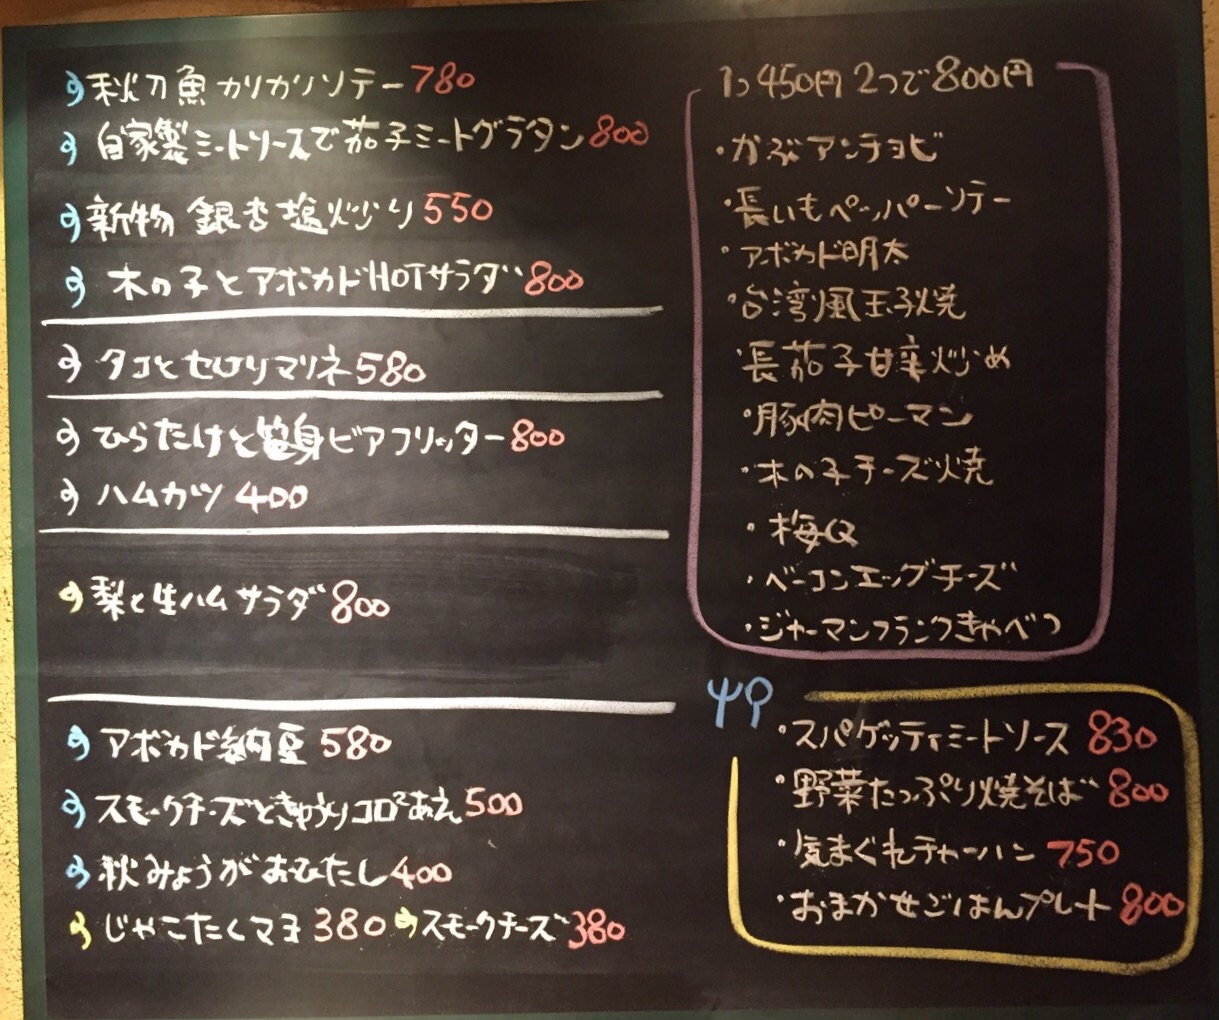 秋刀魚カリカリソテー780
自家製ミートソースで茄子ミートグラタン800
新物 銀杏塩炒り550
木の子とアボカドHOTサラダ800
タコとセロリマリネ580
ひらたけと笹身ビアフリッター800
ハムカツ400
梨と生ハムサラダ800
アボカド納豆580
スモークチーズときゅうりコロ²あえ500
秋みょうがおひたし400
じゃこたくマヨ380 スモークチーズ380
1つ450円2つで800円
・かぶアンチョビ
・長いもペッパーソテー
・アボカド明太
・台湾風玉子焼
・長茄子甘辛炒め
・豚肉ピーマン
・木の子チーズ焼
・梅Q
・ベーコンエッグチーズ
・ジャーマンフランクきゃべつ
・スパゲッティミートソース 830
・野菜たっぷり焼そば800
・気まぐれチャーハン 750
・おまかせごはんプレート800